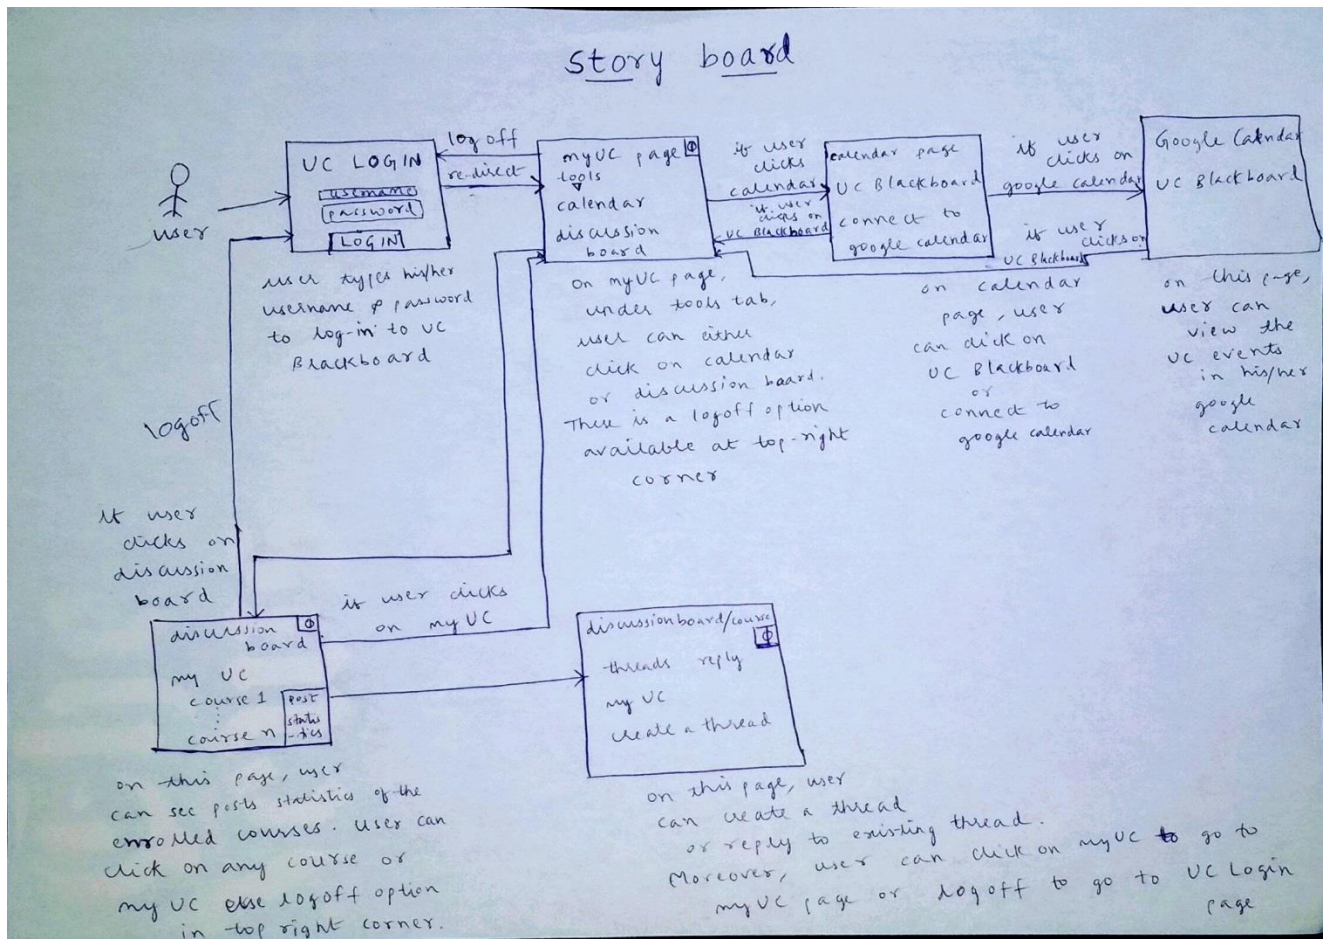 story board
UC LOGIN
username
password
LOGIN
user
user types his/her
username & password
to log-in to UC
Blackboard
log off
re-direct
myUC page
tools
calendar
discussion
board
on myUC page,
under tools tab,
user can either
click on calendar
or discussion board.
There is a logoff option
available at top-right
corner
if user
clicks
calendar
if user
clicks on
UC Blackboard
calendar page
UC Blackboard
connect to
google calendar
on calendar
page, user
can click on
UC Blackboard
or
connect to
google calendar
if user
clicks on
google calendar
if user
clicks on
UC Blackboard
Google Calendar
UC Blackboard
on this page,
user can
view the
UC events
in his/her
google
calendar
logoff
if user
clicks on
discussion
board
if user clicks
on my UC
discussion
board
my UC
course 1
course n
post
statis
-tics
on this page, user
can see posts statistics of the
enrolled courses. User can
click on any course or
my UC else logoff option
in top right corner.
discussionboard/course
threads reply
my UC
create a thread
on this page, user
can create a thread
or reply to existing thread.
Moreover, user can click on myUC to go to
myUC page or logoff to go to UC Login
page